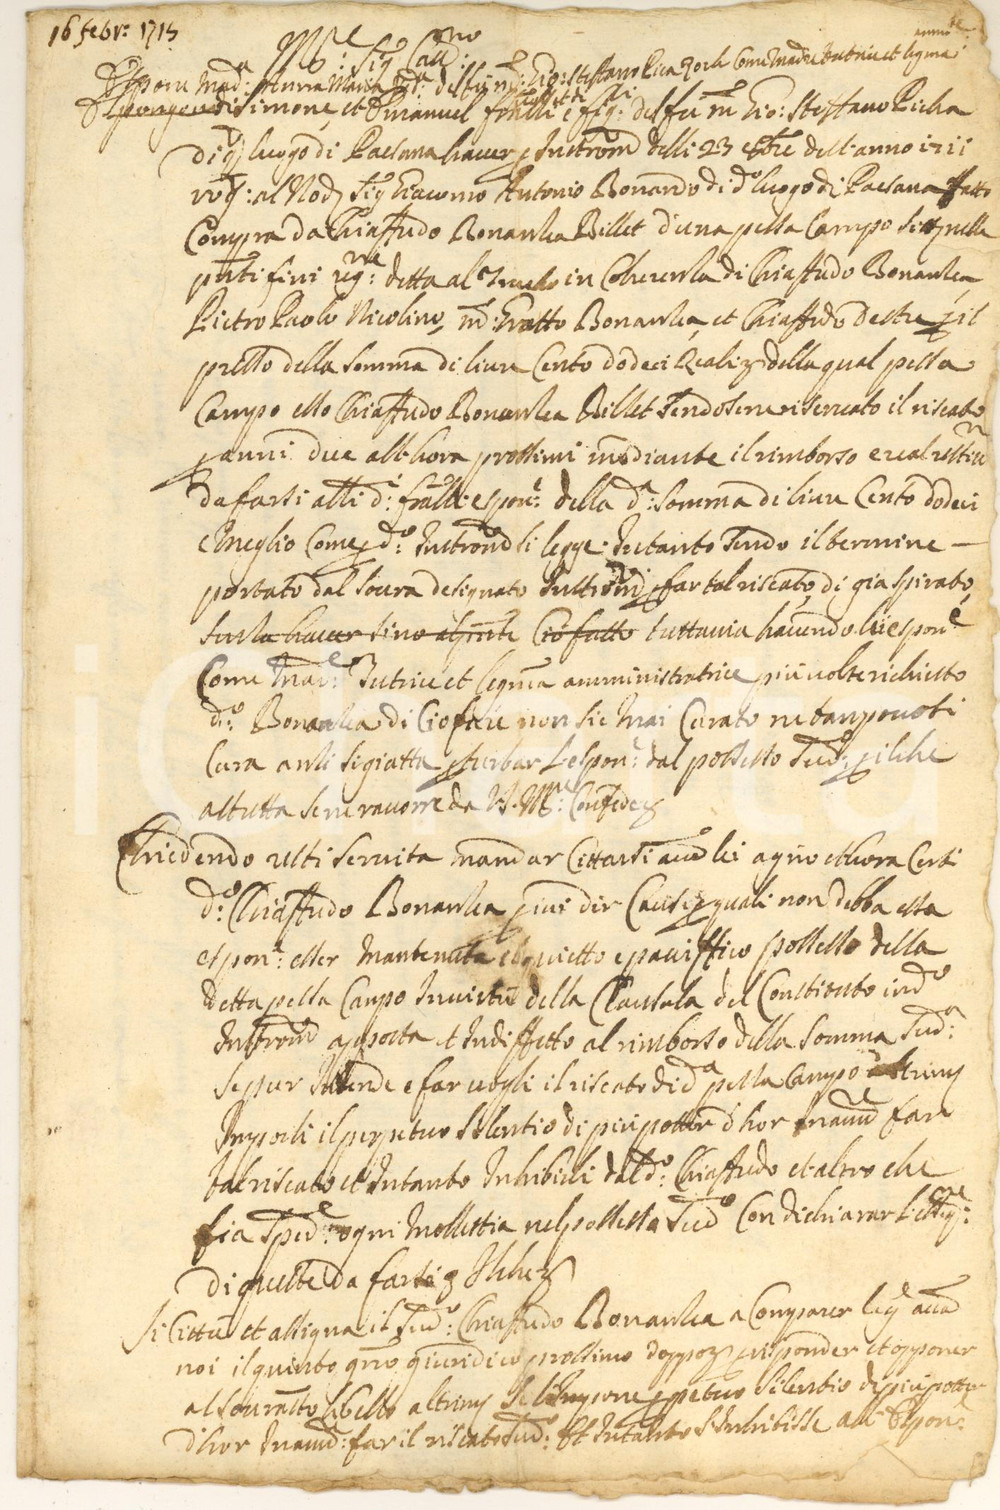 16 febr: 1715
Ill.e Sig. Cau.no
Espone Mad.a Anna Maria del fu m.o Gio: Steffano Richa Come Madre tutrice et legma amm.ce
Simone, et Emanuel fratelli e figli del fu m Gio: Steffano Richa
di q. luogo di Paesana haver p Instrom delli 23 8bre dell'anno 1711
rog: al Nod. Sig Giacomo Antonio Bonardo di d.o luogo di Paesana fatto
Compra da Chiaffredo Bonansea Billet d'una pessa Campo sit nelle
pnti fini reg: detta al in Coherenza di Chiaffredo Bonansea,
Pietro Paolo Nicolino, m: Gratto Bonansea, et Chiaffredo destre p il
prezzo della somma di livre Cento dodeci della qual pessa
Campo esso Chiaffredo Bonansea Billet sendosene riservato il riscato
p anni due all'hora prossimi mediante il rimborso e real restitu
da farsi alli d: fratelli espon: della d.a somma di livre Cento dodeci
e meglio Come p d.o Instrom si legge. Intanto sendo il termine —
portato dal sovra designato Instrom p far tal riscato di gia spirato,
senza haver sino al pnte Ciò fatto tuttavia havendo lei espon.e
Come Mad.e Tutrice et legma amministratrice più volte richiesto
d.o Bonansea di Ciò fare non si è mai Curato ne tampoco si
Cura anzi si giatta p turbar l'espon: dal possesso sud.o p il che
al tutto se ne ricorre da V.S. M.e
Chiedendo resti servita mandar Cittarsi avanti lei a giorno et hora Certi
d.o Chiaffredo Bonansea p ivi dir Cause p quali non debba essa
espon: esser mantenuta al quietto e paciffico possesso della
detta pessa Campo In virtù della Clausula del Constituto in d.o
Instrom apposta et In diffetto al rimborso della somma sud.a
se pur Intende e far vogli il riscato di d.a pessa Campo altrim
Imporli il perpetuo silentio di più poter d'hor In avanti far
tal riscato et Intanto Inhibirli dal d.o Chiaffredo et altro che
sia sped.e ogni molestia nel possesso sud.o Con dichiarar l'essig:
di queste da farsi
Si Citti et assigna il sud.o Chiaffredo Bonansea a Comparer leg. avanti
noi il quinto gno giuridico prossimo doppo p risponder et opponer
al sovrascritto libello altrim se l'Impone perpetuo silentio di più poter
d'hor In avanti far il riscato sud.o Et Intanto s'Inhibisse all' Espon.